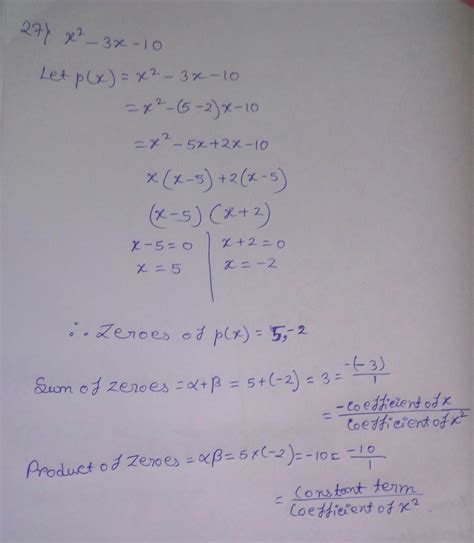 27) x² - 3x - 10
Let p(x) = x² - 3x - 10
= x² - (5 - 2)x - 10
= x² - 5x + 2x - 10
x(x - 5) + 2(x - 5)
(x - 5) (x + 2)
x - 5 = 0 | x + 2 = 0
x = 5 | x = -2
∴ Zeroes of p(x) = 5, -2
Sum of zeroes = α + β = 5 + (-2) = 3 = -(-3)/1
= -coefficient of x / coefficient of x²
Product of zeroes = αβ = 5 × (-2) = -10 = -10/1
= constant term / coefficient of x²